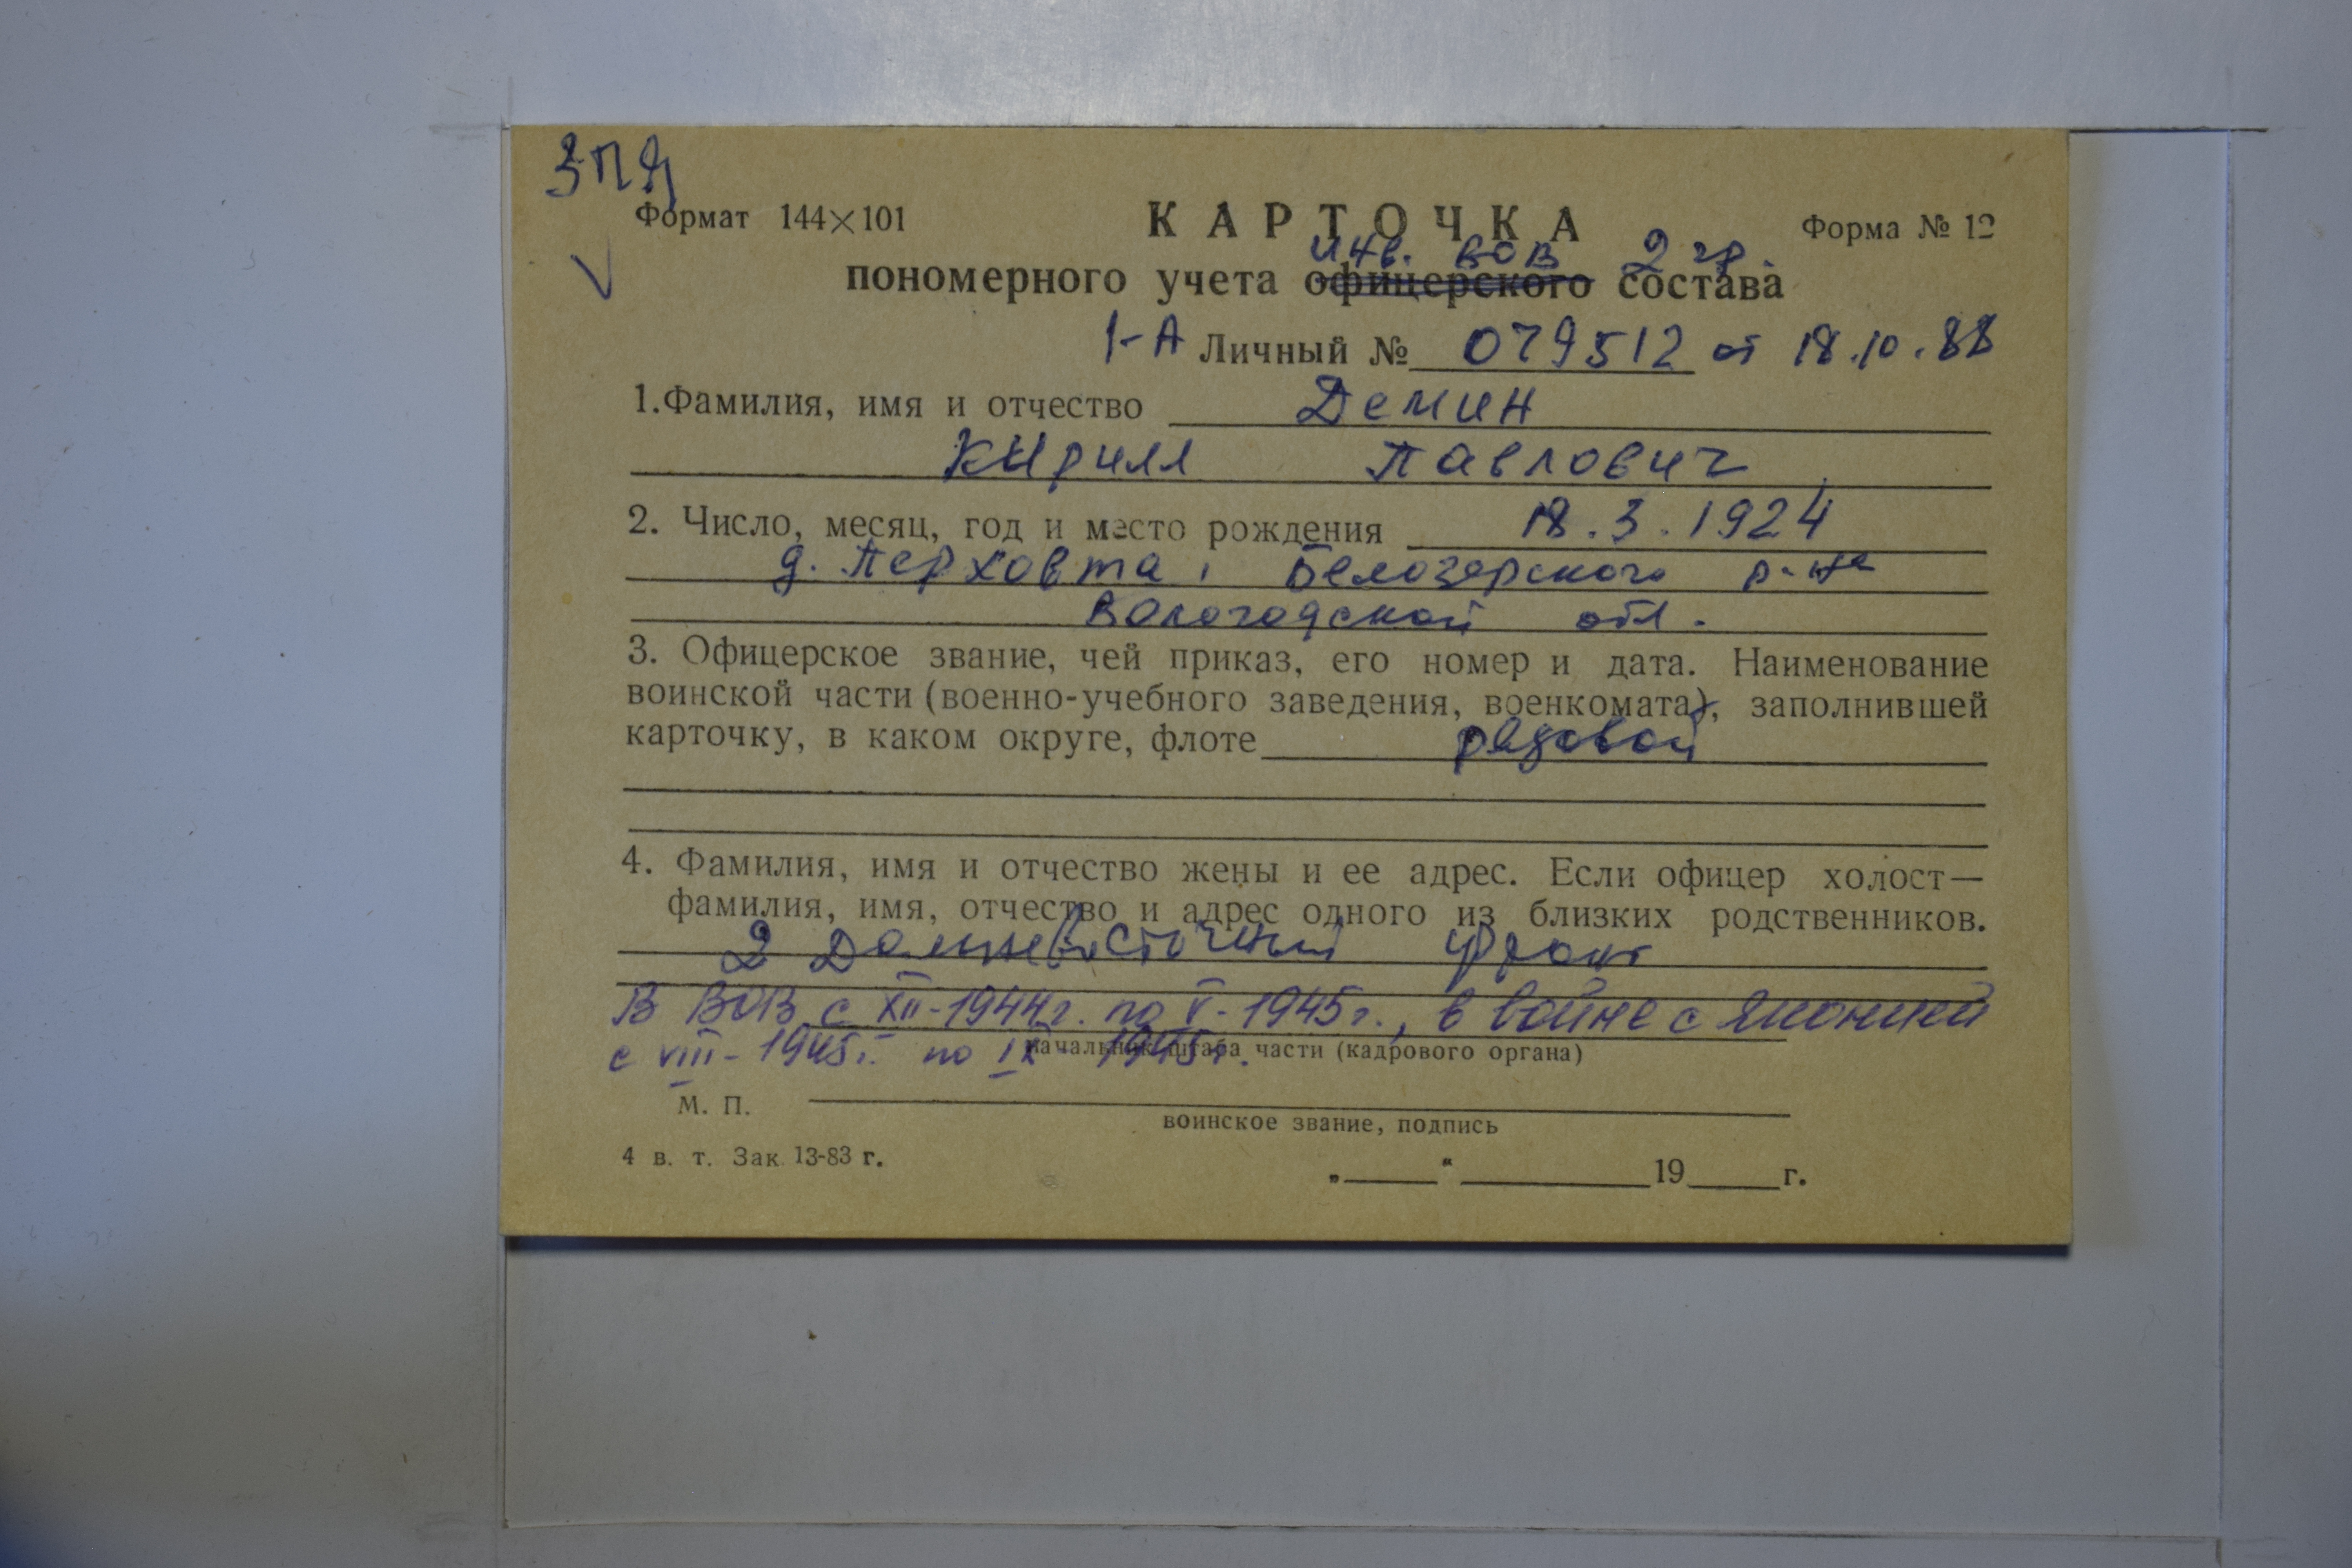 ЗПЯ
Формат 144×101
КАРТОЧКА
Форма № 12
инв. ВОВ 2 гр.
пономерного учета офицерского состава
1-А Личный № 079512 от 18.10.88
1.Фамилия, имя и отчество Демин
Кирилл Павлович
2. Число, месяц, год и место рождения 18.3.1924
д. Перховта, Белозерского р-на
Вологодской обл.
3. Офицерское звание, чей приказ, его номер и дата. Наименование
воинской части (военно-учебного заведения, военкомата), заполнившей
карточку, в каком округе, флоте рядовой
4. Фамилия, имя и отчество жены и ее адрес. Если офицер холост—
фамилия, имя, отчество и адрес одного из близких родственников.
2 Дальневосточный фронт
В ВОВ с XII-1944г. по V-1945г., в войне с Японией
с VIII-1945г. по IX-1945г.
начальник штаба части (кадрового органа)
М. П.
воинское звание, подпись
4 в. т. Зак. 13-83 г.
„____“ ________19____г.